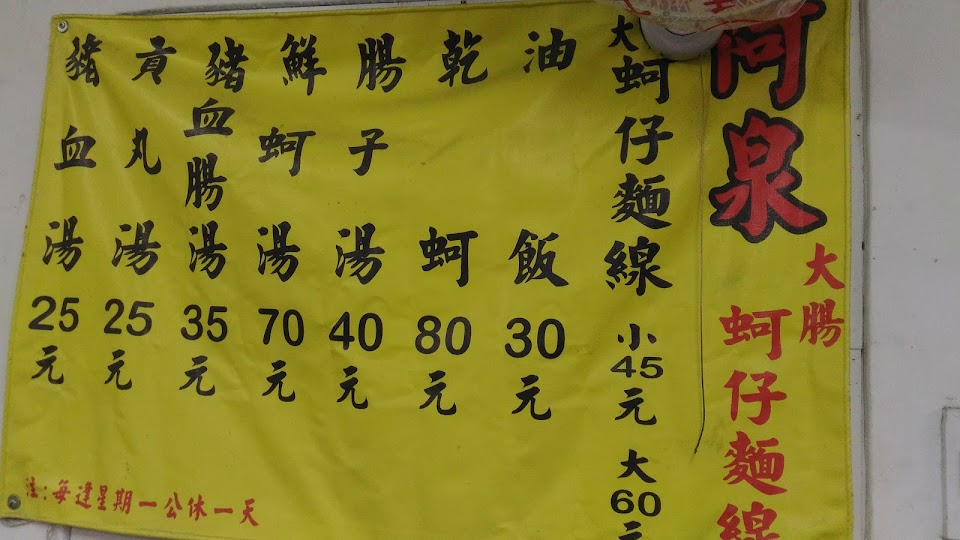 阿泉
大腸
蚵仔麵線
大蚵仔麵線 小45元 大60元
油飯30元
乾蚵80元
腸子湯40元
鮮蚵湯70元
豬血腸湯35元
貢丸湯25元
豬血湯25元
註：每逢星期一公休一天